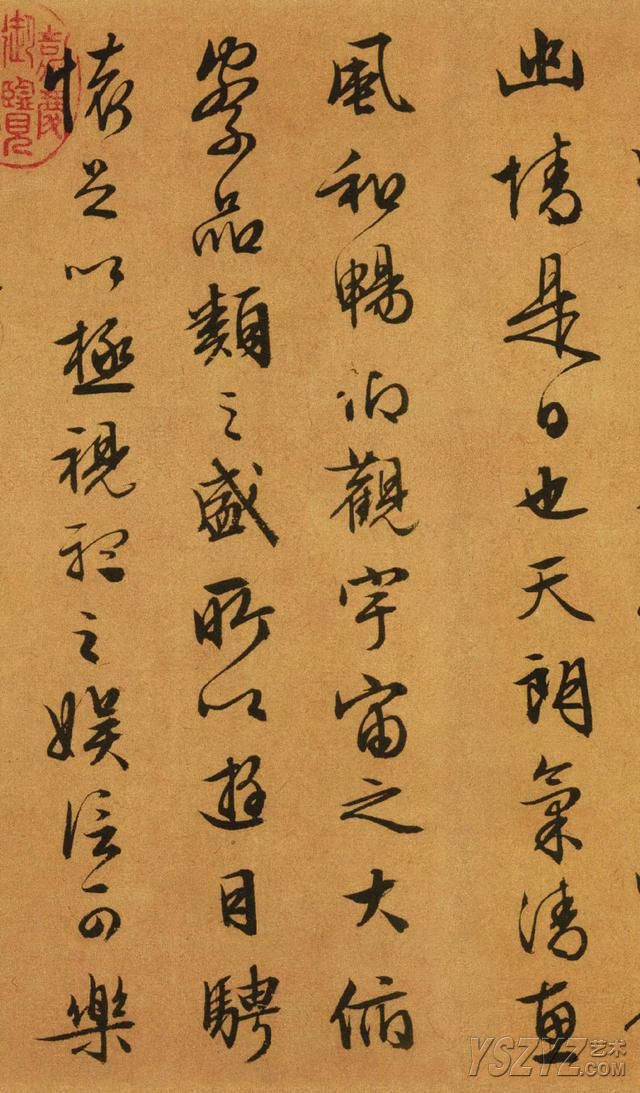 幽情是日也天朗氣清惠
風和暢仰觀宇宙之大俯
察品類之盛所以遊目騁
懷足以極視聽之娛信可樂
嘉慶
御覽
YSZYZ艺术
.COM